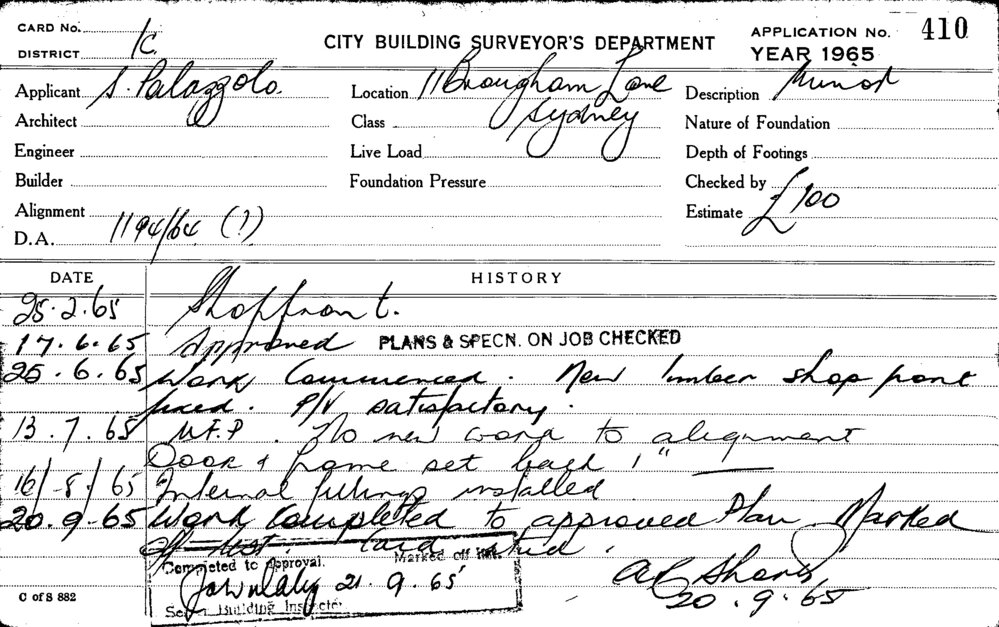 CARD No.
DISTRICT 1C
CITY BUILDING SURVEYOR'S DEPARTMENT
APPLICATION No. 410
YEAR 1965
Applicant S. Palazzolo.
Location 11 Brougham Lane
Sydney
Description Minor
Architect
Class
Nature of Foundation
Engineer
Live Load
Depth of Footings
Builder
Foundation Pressure
Checked by
Alignment
Estimate £100
D.A. 1194/64 (?)
DATE HISTORY
25.2.65 Shopfront.
17.6.65 Approved PLANS & SPECN. ON JOB CHECKED
25.6.65 Work Commenced. New timber shop front
fixed. P/V satisfactory.
13.7.65 W.F.P. No new work to alignment
Door & frame set back 1"
16/8/65 Internal fittings installed.
20.9.65 Work Completed to approved Plan. Marked
off list. Card
Completed to Approval. Marked off list.
21.9.65
Senior Building Inspector
20.9.65
C of S 882